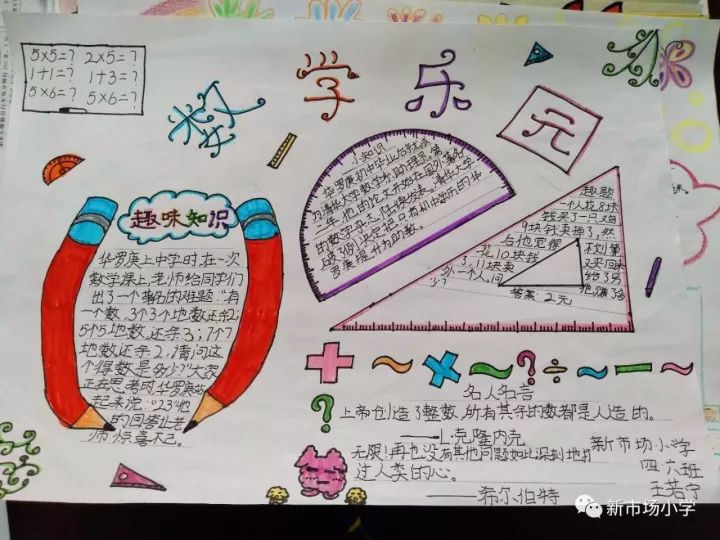 5×5=? 2×5=?
1+1=? 1+3=?
5×6=? 5×6=?
数学乐元
趣味知识
华罗庚上中学时,在一次
数学课上,老师给同学们
出了一个著名的难题:"有
一个数,3个3个地数还余2;
5个5地数还余3;7个7
地数还余2,请问这
个得数是多少?"大家
正在思考时,华罗庚站
起来说:"23"他
的回答让老
师惊喜不已。
小知识
华罗庚初中毕业后就在
为清华大学数学系助理员。第
二年,他的论文开始在国外著名
的数学杂志陆续发表。清华大学
决定把只有初中学历的华
罗庚提升为助教。
趣题
一个人花8块
钱买了一只鸡
9块钱卖掉了,然
后他觉得不划算
花10块钱又买回来
了,11块卖给了另
外一个人。问他赚了多
少?
答案:2元
+ ~ × ~ ? ÷ ~ — ~
?
名人名言
上帝创造了整数,所有其余的数都是人造的。
——L·克隆内克
无限!再也没有其他问题如此深刻地打
过人类的心。
——希尔伯特
新市场小学
四六班
新市场小学